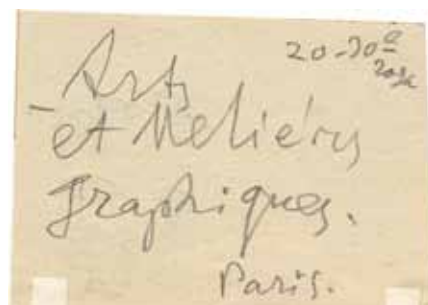 20-30 a
Arts
et Meliérs
graphiques.
Paris.